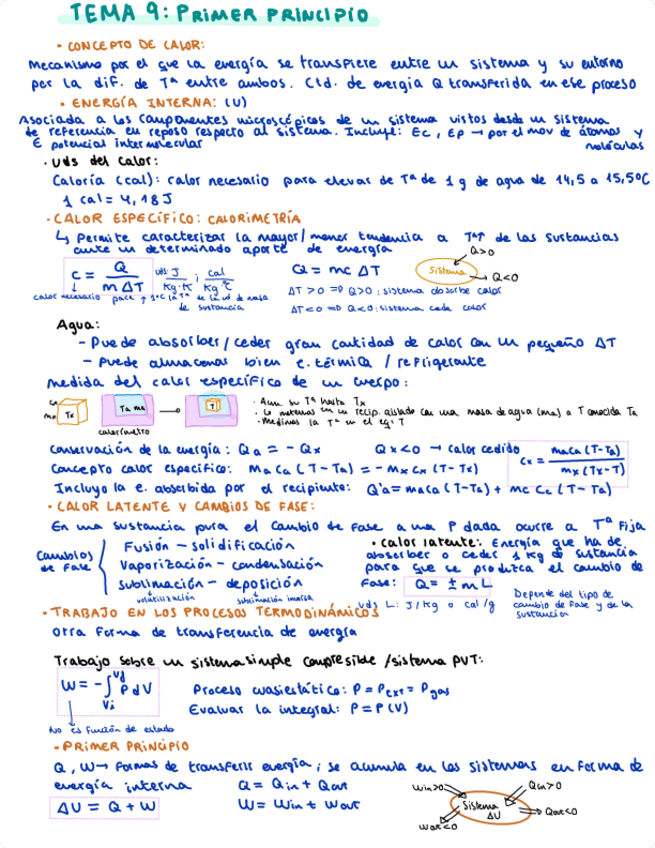 TEMA 9: PRIMER PRINCIPIO
· CONCEPTO DE CALOR:
Mecanismo por el que la energía se transfiere entre un sistema y su entorno
por la dif. de Tª entre ambos. Ctd. de energía Q transferida en ese proceso
· ENERGÍA INTERNA: (U)
Asociada a los componentes microscópicos de un sistema vistos desde un sistema
de referencia en reposo respecto al sistema. Incluye: Ec, Ep → por el mov de átomos y
E potencial intermolecular moléculas
· Uds del calor:
Caloría (cal): calor necesario para elevar de Tª de 1 g de agua de 14,5 a 15,5ºC
1 cal = 4,18J
· CALOR ESPECÍFICO: CALORIMETRÍA
↳ Permite caracterizar la mayor/menor tendencia a Tª↑ de las sustancias
ante un determinado aporte de energía
Q>0
c = Q / m ΔT uds: J / Kg·K ; cal / Kg·ºC
Q = mc ΔT
Sistema
→ Q<0
calor necesario para ↑ 1ºC la Tª de la ud de masa
de sustancia
ΔT > 0 ⇒ Q>0 : sistema absorbe calor
ΔT<0 ⇒ Q<0: sistema cede calor
Agua:
- Puede absorber/ceder gran cantidad de calor con un pequeño ΔT
- Puede almacenar bien e. térmica / refrigerante
medida del calor específico de un cuerpo:
cx
mx Tx
Ta ma
→
T
calorímetro
· Aum su Tª hasta Tx
· Lo metemos en un recip. aislado con una masa de agua (ma) a T conocida Ta
· Medimos la Tª en el eq: T
Conservación de la energía: Qa = - Qx Qx<0 → calor cedido
cx = maca (T-Ta) / mx (Tx-T)
Concepto calor específico: ma ca (T-Ta) = - mx cx (T-Tx)
Incluyo la e. absorbida por el recipiente: Q'a= maca (T-Ta) + mc cc (T-Ta)
· CALOR LATENTE Y CAMBIOS DE FASE:
En una sustancia pura el cambio de fase a una P dada ocurre a Tª fija
Cambios
de fase
Fusión - solidificación
Vaporización - condensación
Sublimación - deposición
volatilización sublimación inversa
· calor latente: Energía que ha de
absorber o ceder 1 kg de sustancia
para que se produzca el cambio de
fase: Q= ± m L
uds L: J/kg o cal/g
Depende del tipo de
cambio de fase y de la
sustancia
· TRABAJO EN LOS PROCESOS TERMODINÁMICOS
Otra forma de transferencia de energía
Trabajo sobre un sistema simple compresible /sistema PVT:
W = -∫ Vi Vf P dV
Proceso cuasiestático: P = Pext = Pgas
Evaluar la integral: P = P (V)
No es función de estado
- PRIMER PRINCIPIO
Q, W → formas de transferir energía; se acumula en los sistemas en forma de
energía interna Q = Qin + Qout
ΔU = Q + W W = Win + Wout
Win>0 Qin>0
Sistema
ΔU
Qout<0
Wout<0